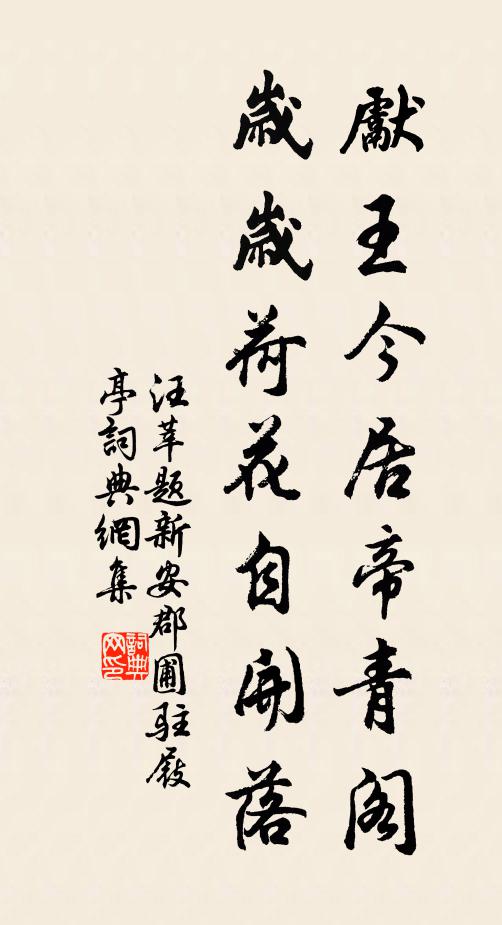 獻王今居帝青閣
歲歲荷花自開落
汪莘題新安郡圃駐屐
亭詞典網集
詞典網印